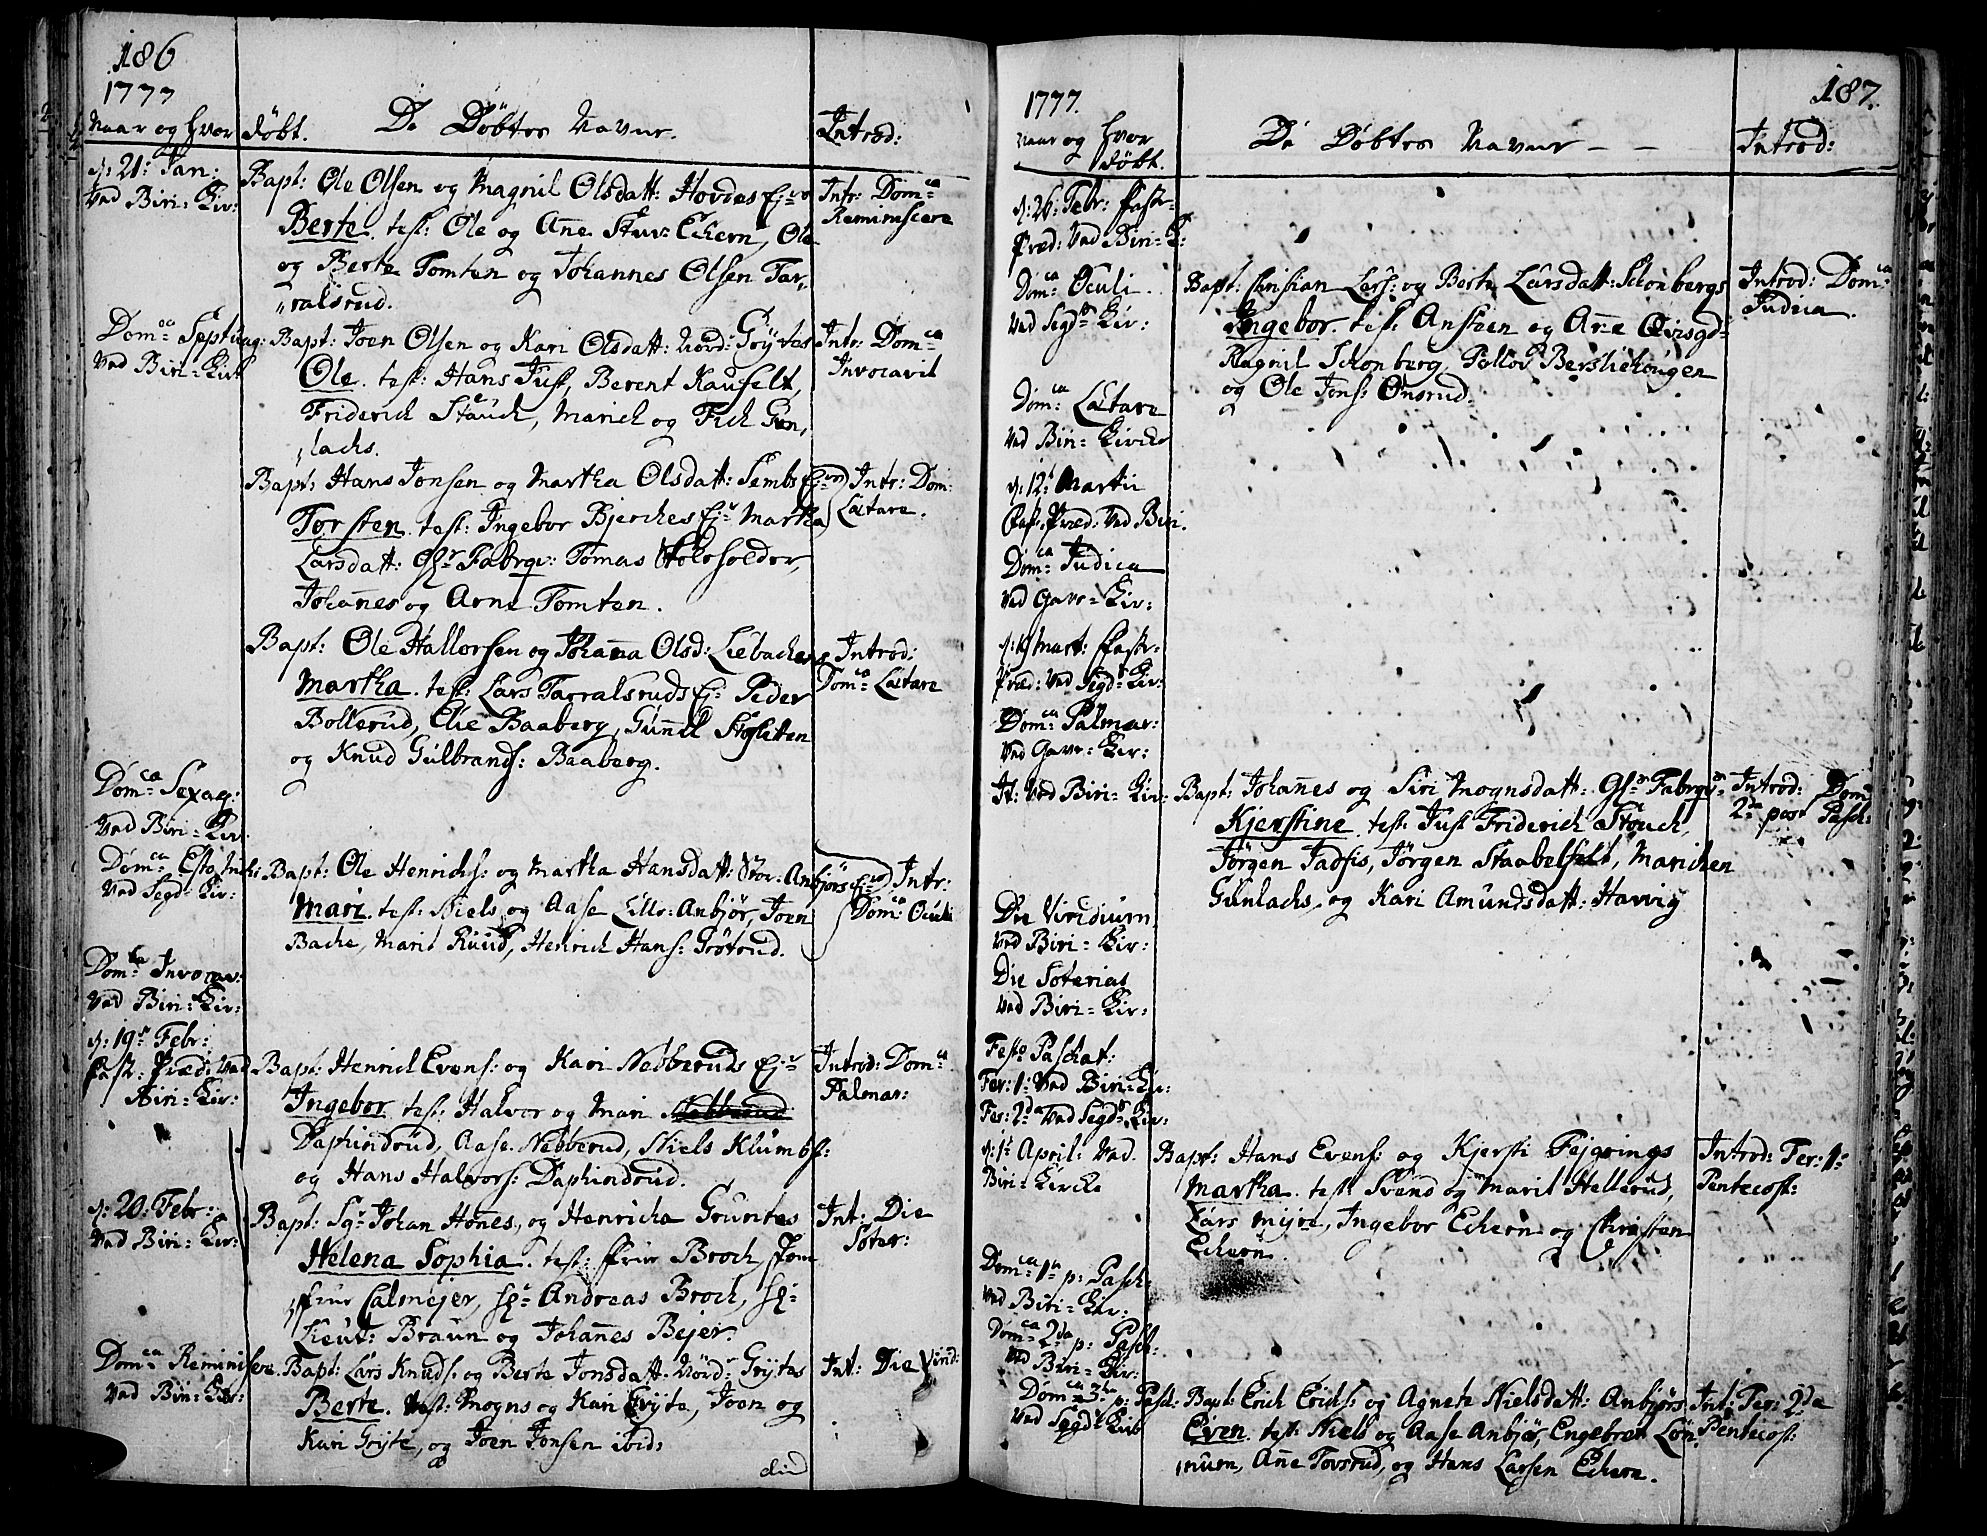 186
1777
Naar og hvor døbt. De Døbtes Navne. Introd:
d: 21: Jan:
Ved Biri-Kir:
Bapt: Ole Olsen og Magnil Olsdatt: Hovdes Ej:
Berte. test: Ole og Ane Stur: Echern, Ole
og Berte Tomten og Johannes Olsen Tar,,
,,ralsrud.
Intr: Dom:ca
Reminiscere
Dom:ca Septuag:
Ved Biri-Kirk
Bapt: Joen Olsen og Kari Olsdatt: Nord: Grytes
Ole. test: Hans Just, Berent Kaufelt,
Friderich Stauch, Marich og Fich Gun,
,lachs.
Intr: Dom:ca
Invocavit
Bapt: Hans Jonsen og Martha Olsdatt: Sembs Ej:
Torsten. test: Ingebor Bjerches Ej: Martha
Larsdatt: Gl:r Fabrqv: Tomas
Johannes og Arne Tomten.
Intr: Dom:
Lætare.
Bapt: Ole Hallorsen og Johanna Olsd: Liebachens
Martha. test: Lars Tarralsruds Ej: Peder
Bollerud, Elie Baaberg, Gunnil Stosliten
og Knud Gulbrands: Baaberg.
Introd:
Dom:ca Lætare
Dom:ca Sexag:
Ved Biri-Kir:
Dom:ca Esto mihi
Ved Segd: Kir:
Bapt: Ole Henrichs: og Martha Hansdatt: Stor-Anbjørs Ej:
Mari. test: Niels og Aase Lille-Anbjør, Joen
Bache, Mari Ruud, Henrich Hans: Grøtrud.
Intr:
Dom:ca Oculi
Dom:ca Invocav:
Ved Biri-Kir:
d: 19: Febr:
Fast: Præd: Ved
Biri-Kir:
Bapt: Henrich Evens: og Kari Nebberuds Ej:
Ingebor. test: Halvor og Mari
Daphindrud, Aase Nebberud, Niels Klumbs:
og Hans Halvors: Daphindrud.
Introd: Dom:ca
Palmar:
d: 20: Febr:
Ved Biri-Kir:
Bapt: Sgr Johan Hones, og Henricha Gruntes
Helena Sophia. test: Frue Broch, Jom
,,frue Calmejer, Sr Andreas Broch, Sr
Lieut: Braun og Johannes Bejer.
Int: Die
Soter:
Dom:ca Reminisere.
Ved Biri-Kir:
Bapt: Lars Knuds: og Berte Jonsdatt: Nord: Grytes
Berte. test: Mogns og Kari Gryte, Joen og
Kari Gryte, og Joen Jonsen ibid:
Int: Die Virid:
187.
1777.
Naar og hvor
døbt.
De Døbtes Navne - -
Introd:
d: 26: Febr: Fast-
Præd: Ved Biri-K:
Dom:ca Oculi.
Ved Segd: Kir:
Bapt: Christian Lars: og Berte Larsdatt: Schonbergs
Ingebor. test: Ansteen og Ane Qvisgd:
Ragnil Schonberg, Pollov Bersliehougen
og Ole Jons: Onsrud.
Introd: Dom:ca
Judica.
Dom:ca Lætare
Ved Biri-Kirche
d: 12: Martii
Fast: Præd: Ved Biri.
Dom:ca Judica
Ved Gavr-Kir:
d: 19 Mart: Fast-
Præd: Ved Segd: Kir:
Dom:ca Palmar:
Ved Gavr-Kir:
It: Ved Biri-Kir:
Bapt: Johannes og Siri Mognsdatt: Gl: Fabrqv:
Kjerstine. test: Just Friderich Stouch,
Jørgen Tadsis, Jørgen Staabelfelt, Marichen
Gunlachs, og Kari Amundsdatt: Harvig
Introd: Dom:
2:da post Pasch:
Die Viridium.
Ved Biri-Kir:
Die Soterias
Ved Biri-Kir:
Festo Paschat:
Fer: 1: Ved Biri-Kir:
Fer: 2:da Ved Segd: Kir:
d: 1: April: Ved
Biri-Kirche
Bapt: Hans Evens: og Kjersti Fejgrings
Martha. test: Svend og Marit Hellerud,
Lars Myre, Ingebor Echern og Christen
Echern.
Introd: Fer: 1:
Pentecost:
Dom:ca 1:a p: Pasch:
Ved Biri-Kir:
Dom:ca 2:da p: Pasch:
Ved Biri-Kir:
Dom:ca 3:tia p: Pasch:
Ved Segd: Kirk
Bapt: Erich Erichs: og Agnete Nielsdatt: Anbjørs
Even. test: Niels og Aase Anbjør, Engebret Løn,
,num, Ane Tovsrud, og Hans Larsen Echern.
Int: Fer: 2:da
Pentecost: